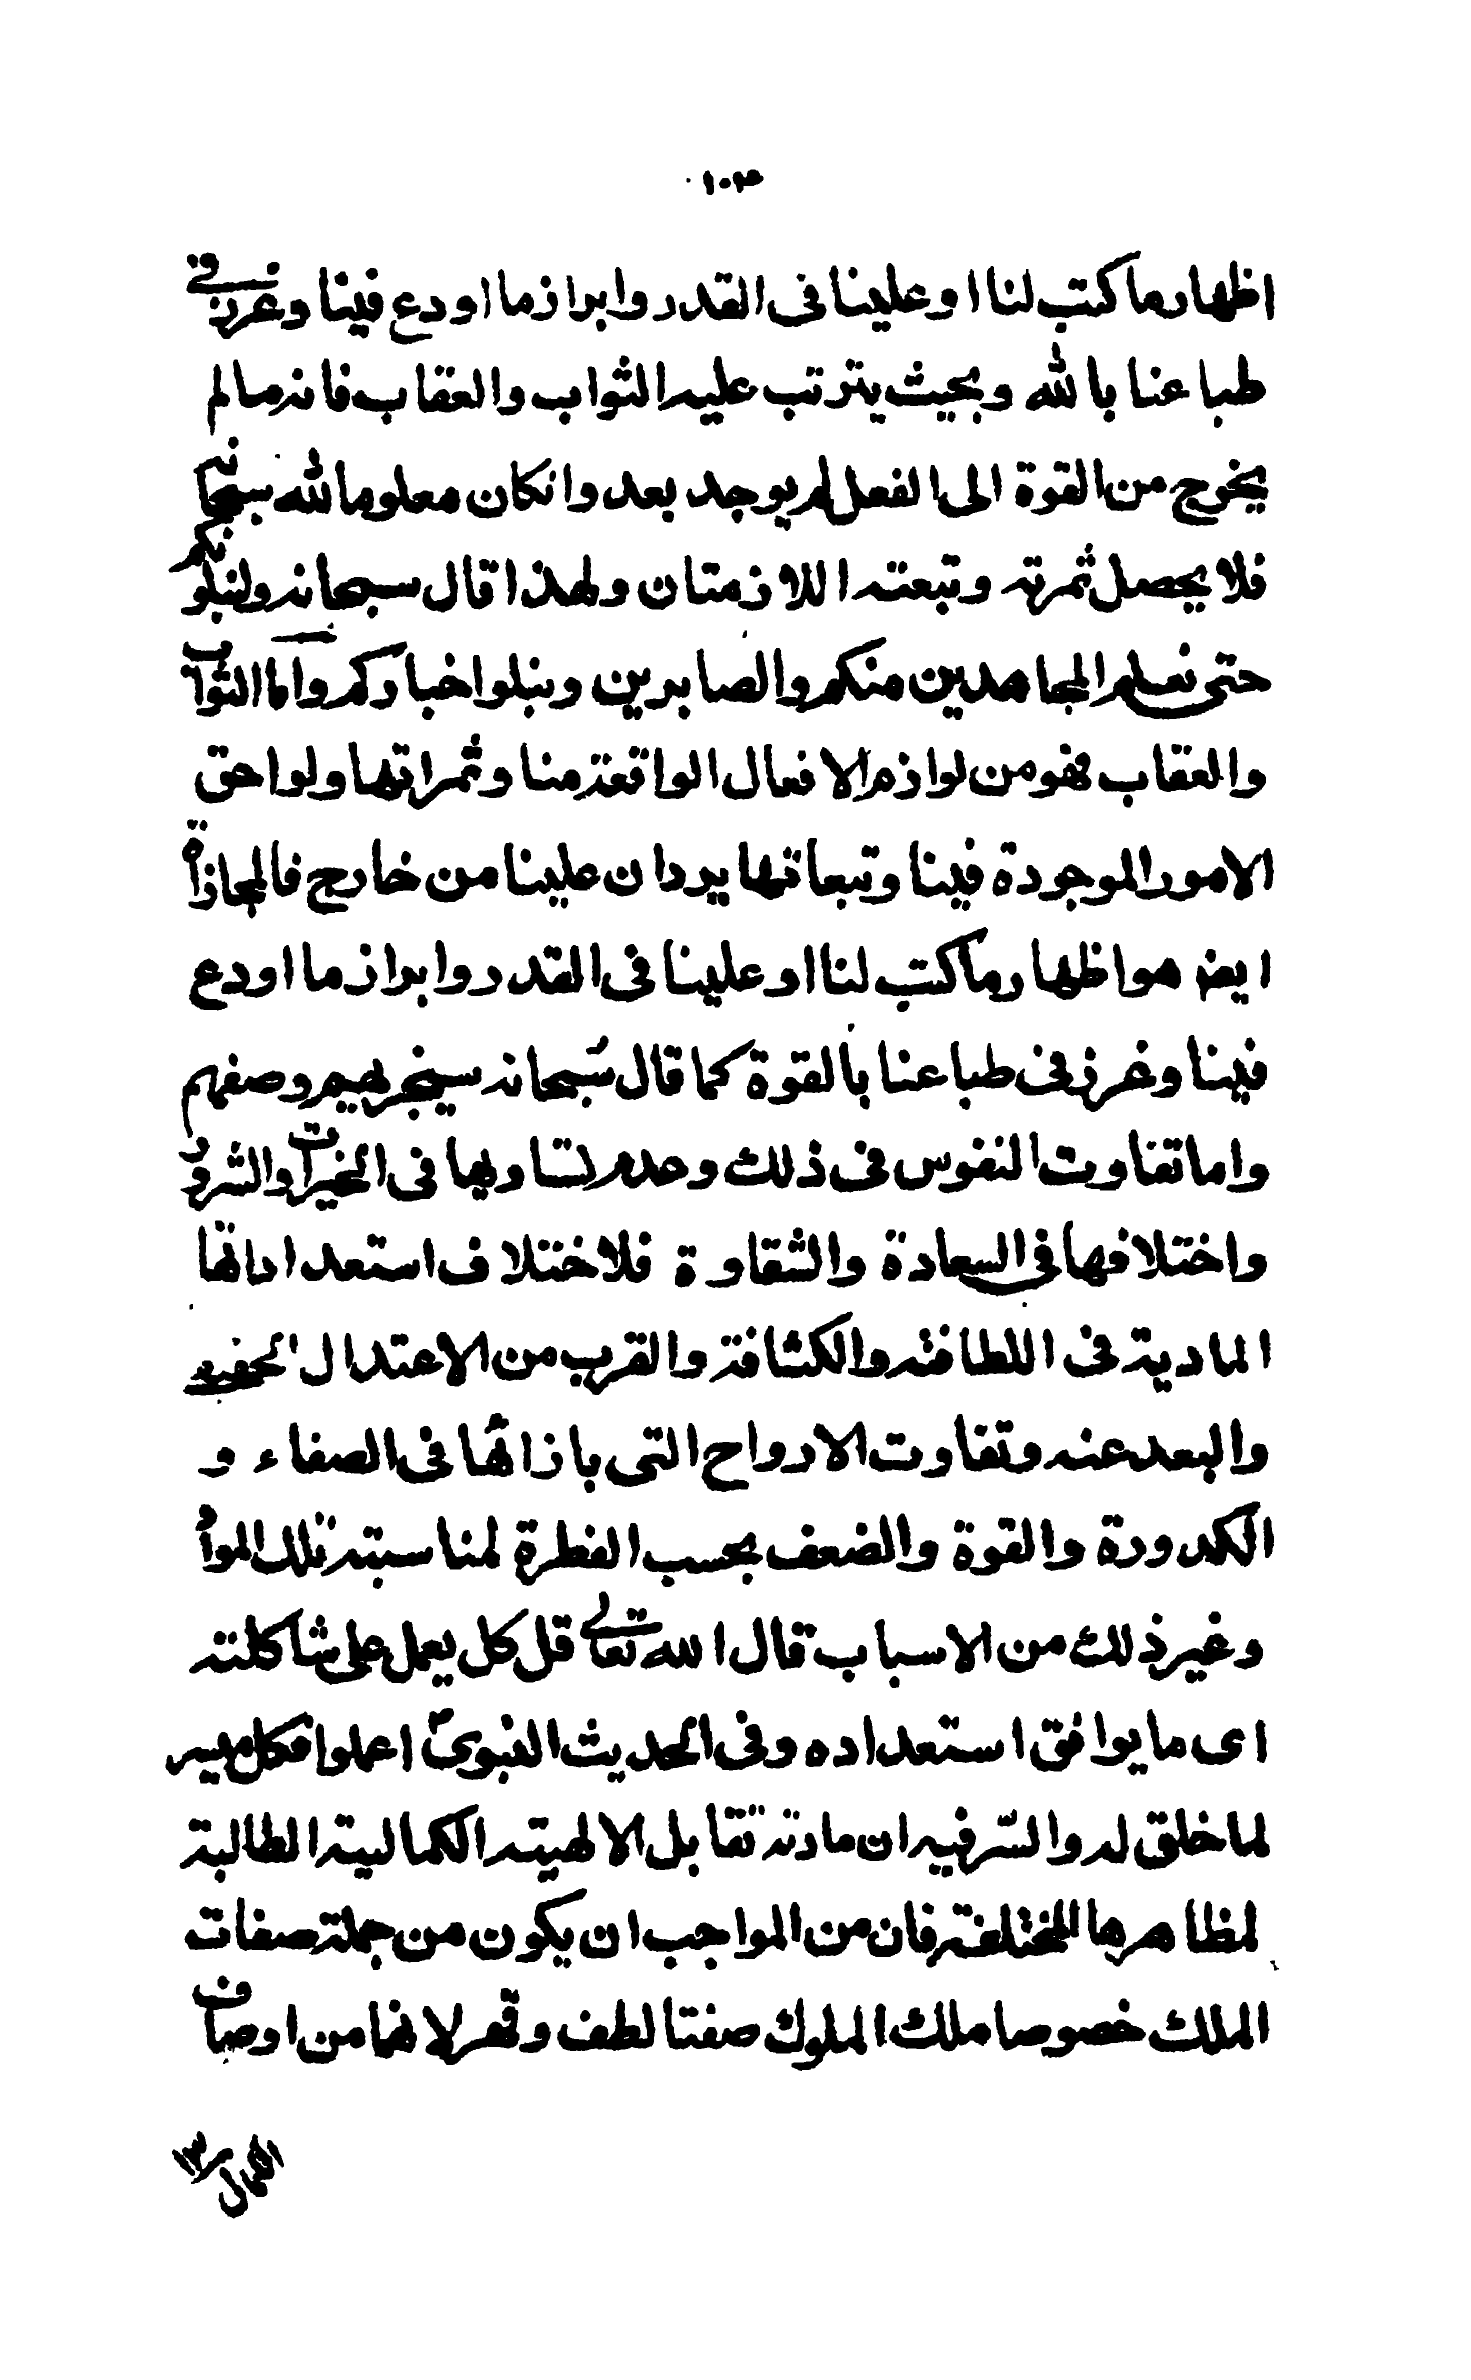 ١٠٣
اظهار ما كتب لنا او علينا فى القدر وابراز ما اودع فينا وغرز فى
طباعنا بالله وبحيث يترتب عليه الثواب والعقاب فانه ما لم
يخرج من القوة الى الفعل لم يوجد بعد وانكان معلوما لله سبحانه
فلا يحصل ثمرته وتبعته اللازمتان ولهذا قال سبحانه ولنبلونكم
حتى نعلم المجاهدين منكم والصابرين ونبلو اخباركم واما الثواب
والعقاب فهو من لوازم الافعال الواقعة منا وثمراتها ولواحق
الامور الموجودة فينا وتبعاتها يردان علينا من خارج فالمجازاة
ايض هو اظهار ما كتب لنا او علينا فى القدر وابراز ما اودع
فينا وغرز فى طباعنا بالقوة كما قال سبحانه سيجزيهم وصفهم
واما تفاوت النفوس فى ذلك وعدم تساويها فى الخيرات والشرور
واختلافها فى السعادة والشقاوة فلاختلاف استعداداتها
المادية فى اللطافة والكثافة والقرب من الاعتدال الحقيقى
والبعد عنه وتفاوت الارواح التى بازائها فى الصفاء و
الكدورة والقوة والضعف بحسب الفطرة لمناسبة تلك المواد
وغير ذلك من الاسباب قال الله تعالى قل كل يعمل على شاكلته
اى ما يوافق استعداده وفى الحديث النبوىّ اعملوا فكل ميسر
لما خلق له والسّر فيه ان مادته تقابل الالهية الكمالية الطالبة
لمظاهرها المختلفة فان من الواجب ان يكون من جملة صفات
الملك خصوصا ملك الملوك صفتا لطف وقهر لانهما من اوصاف